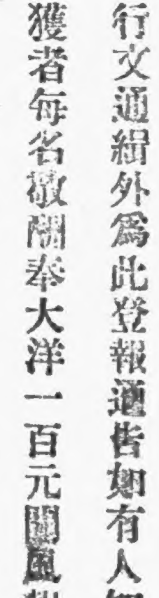 行文通緝外爲此登報通告如有人
獲者每名敬酬奉大洋一百元聞風